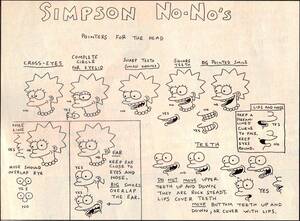 SIMPSON NO-NO's
POINTERS FOR THE HEAD
CROSS-EYES
COMPLETE
CIRCLE
FOR
EYELID
SHARP TEETH
SQUARE
TEETH
BIG POINTED SMILE
NO
YES
NO
YES
NO
YES
NO
YES
NO
YES
NOSE LINE
NOSE SHOULD
OVERLAP EYE
YES
NO
EAR
KEEP EAR
CLOSE TO
EYES AND
NOSE.
BIG SMILES
OVERLAP
THE EAR.
NO
YES
LIPS AND NOSE
KEEP A
LINES.
CURVE
TO FIX.
KEEP
ROUND.
YES
NO
TEETH
YES
NO
DO NOT MOVE UPPER
TEETH UP AND DOWN
THEY ARE ROCK STEADY.
LIPS COVER TEETH
MOVE BOTTOM TEETH UP AND
DOWN, OR COVER WITH LIPS.
YES